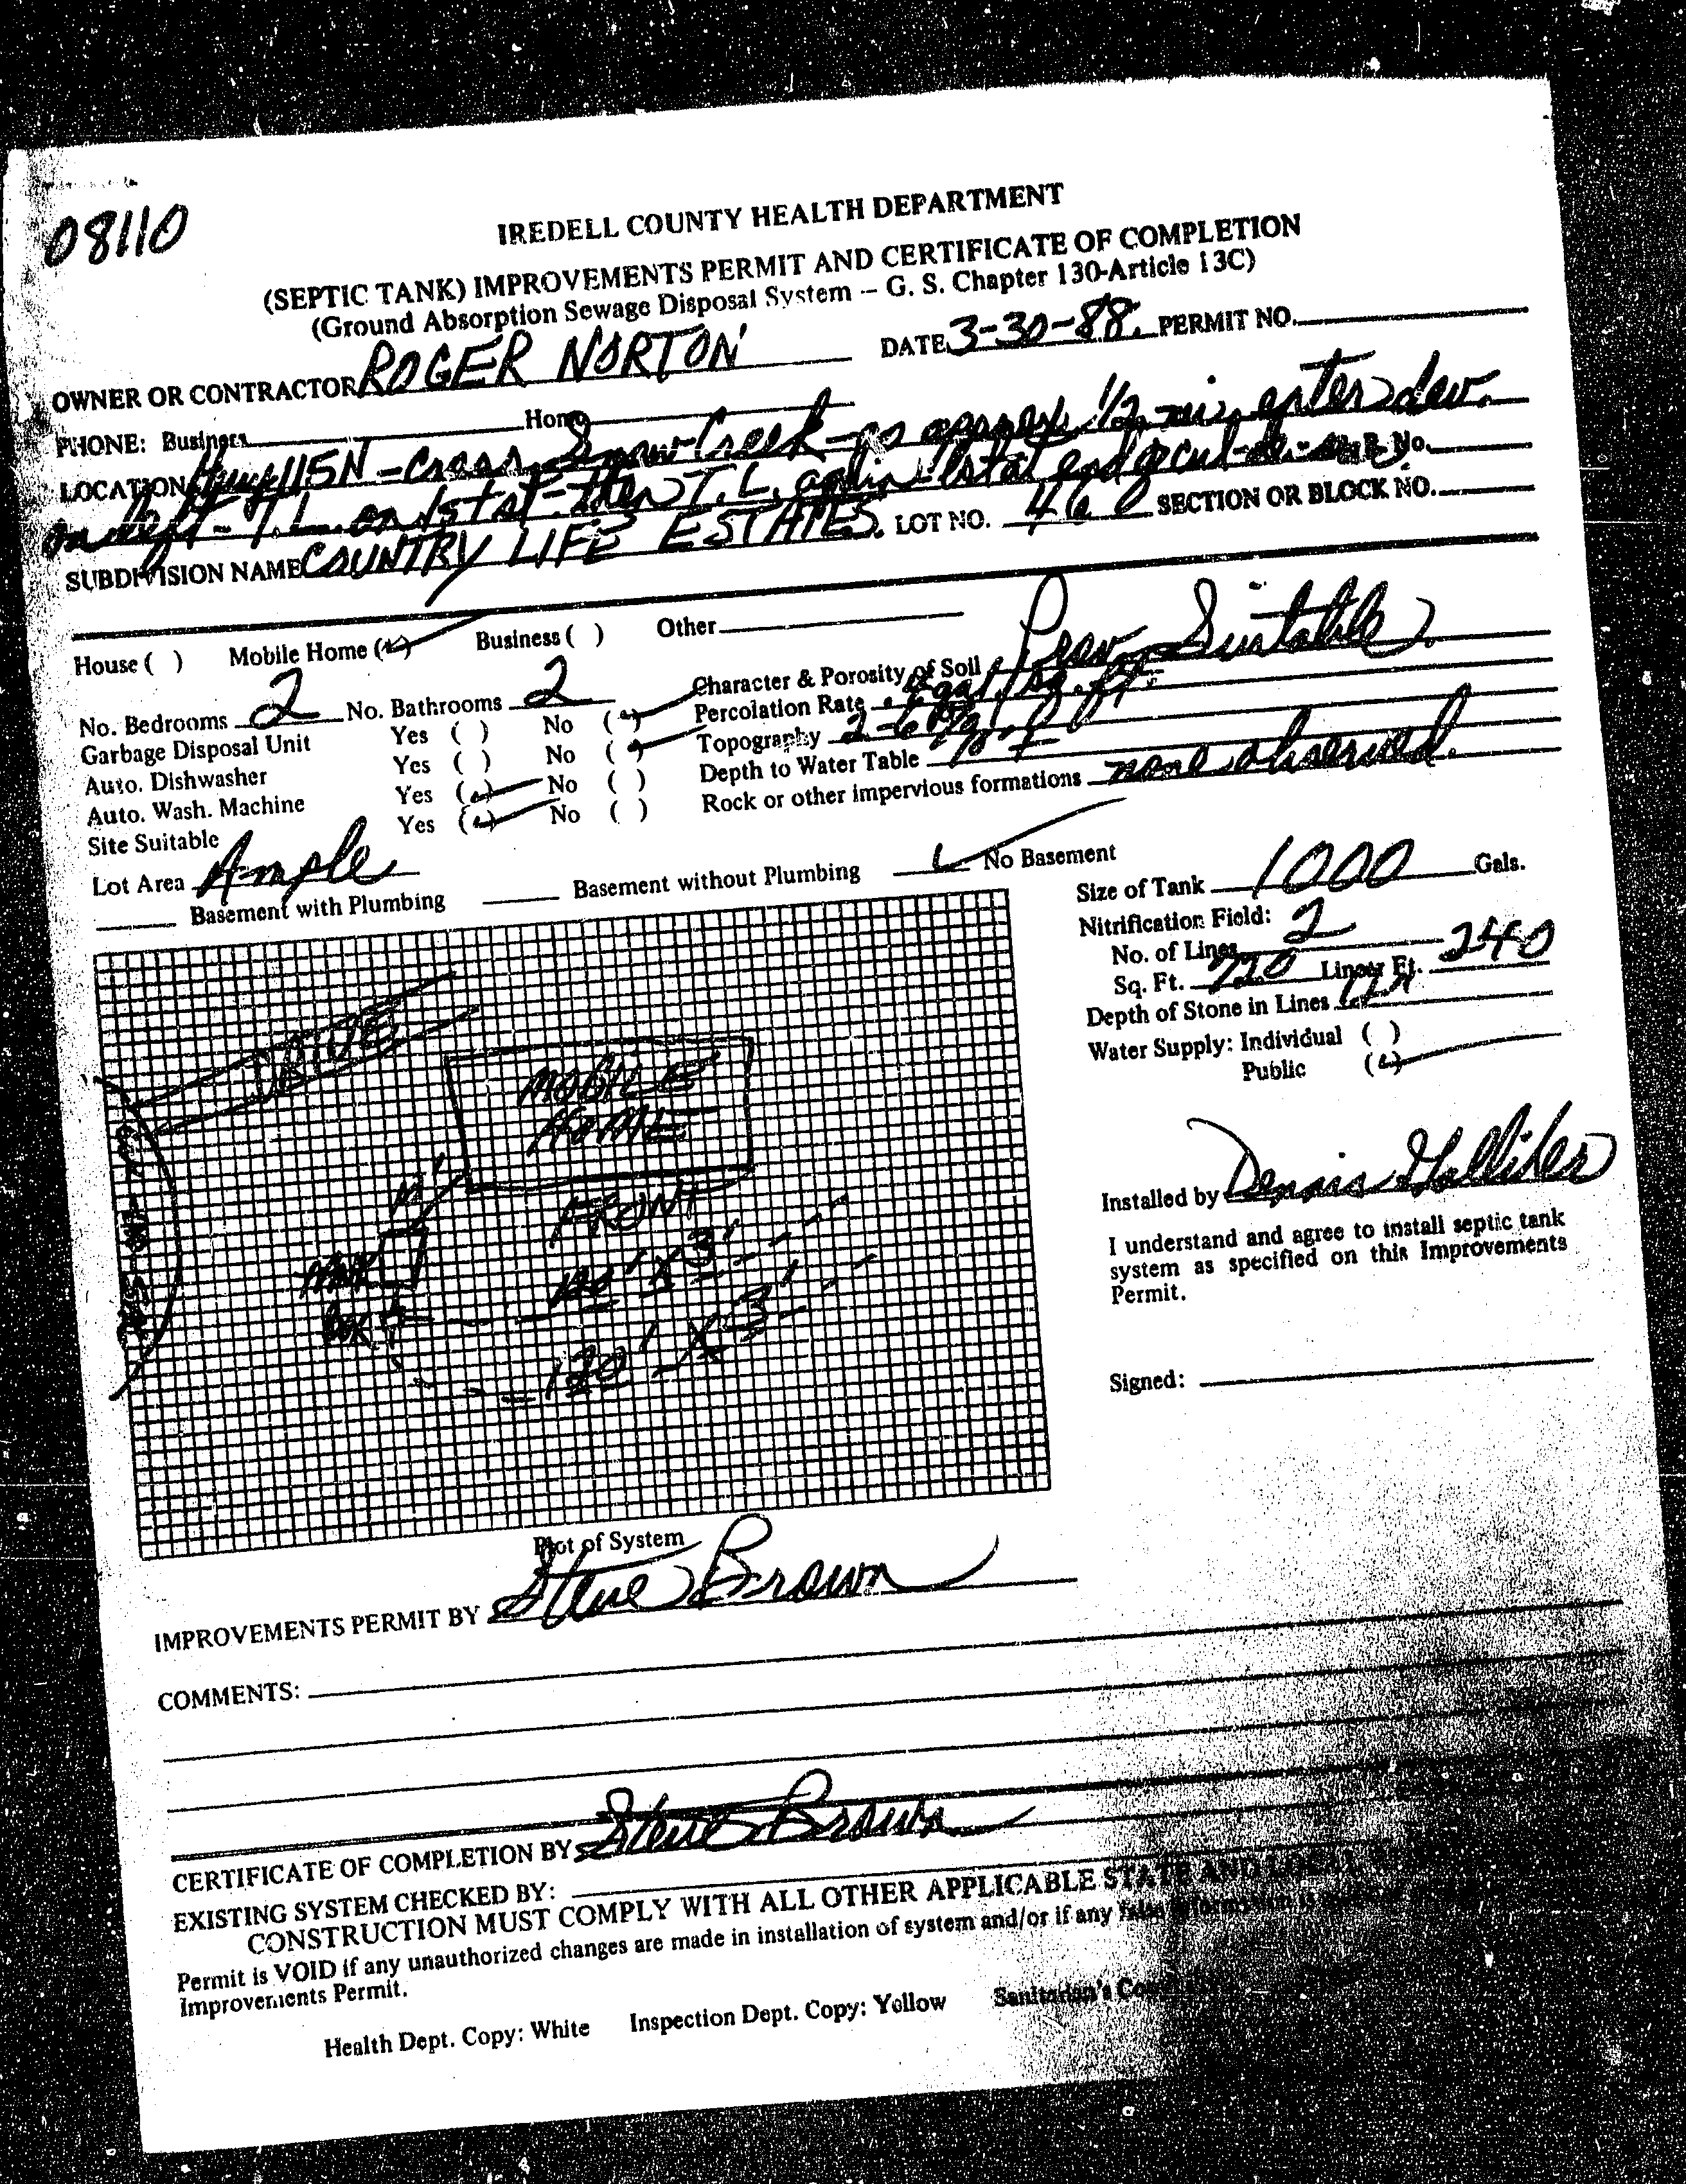 08110
IREDELL COUNTY HEALTH DEPARTMENT
(SEPTIC TANK) IMPROVEMENTS PERMIT AND CERTIFICATE OF COMPLETION
(Ground Absorption Sewage Disposal System – G. S. Chapter 130-Article 13C)
OWNER OR CONTRACTOR ROGER NORTON DATE 3-30-88 PERMIT NO.
PHONE: Business Home
LOCATION Hwy 115N - Cross Snow Creek - go approx 1/2 mi. enter dev.
on left - T.L. on 1st st - then T.L. again 1st st end cul-de-sac R. No.
SUBDIVISION NAME COUNTRY LIFE ESTATES LOT NO. 46 SECTION OR BLOCK NO.
House ( ) Mobile Home (✓) Business ( ) Other
No. Bedrooms 2 No. Bathrooms 2 Character & Porosity of Soil Prov. Suitable
Garbage Disposal Unit Yes ( ) No (✓) Percolation Rate .4 gal/sq. ft.
Auto. Dishwasher Yes ( ) No (✓) Topography 2-6%
Auto. Wash. Machine Yes (✓) No ( ) Depth to Water Table
Site Suitable Yes (✓) No ( ) Rock or other impervious formations none observed.
Lot Area Ample
Basement with Plumbing Basement without Plumbing ✓ No Basement
Size of Tank 1000 Gals.
Nitrification Field:
No. of Lines 2
Sq. Ft. 720 Linear Ft. 240
Depth of Stone in Lines
Water Supply: Individual ( )
Public (✓)
Installed by Dennis
I understand and agree to install septic tank
system as specified on this Improvements
Permit.
Signed:
DRIVE
MOBILE
HOME
FRONT
CUL-DE-SAC
TANK
BOX
120' X 3'
120' X 3'
Plot of System
IMPROVEMENTS PERMIT BY Steve Brown
COMMENTS:
CERTIFICATE OF COMPLETION BY Steve Brown
EXISTING SYSTEM CHECKED BY:
CONSTRUCTION MUST COMPLY WITH ALL OTHER APPLICABLE STATE AND LOCAL
Permit is VOID if any unauthorized changes are made in installation of system and/or if any false information is
Improvements Permit.
Health Dept. Copy: White Inspection Dept. Copy: Yellow Sanitarian's